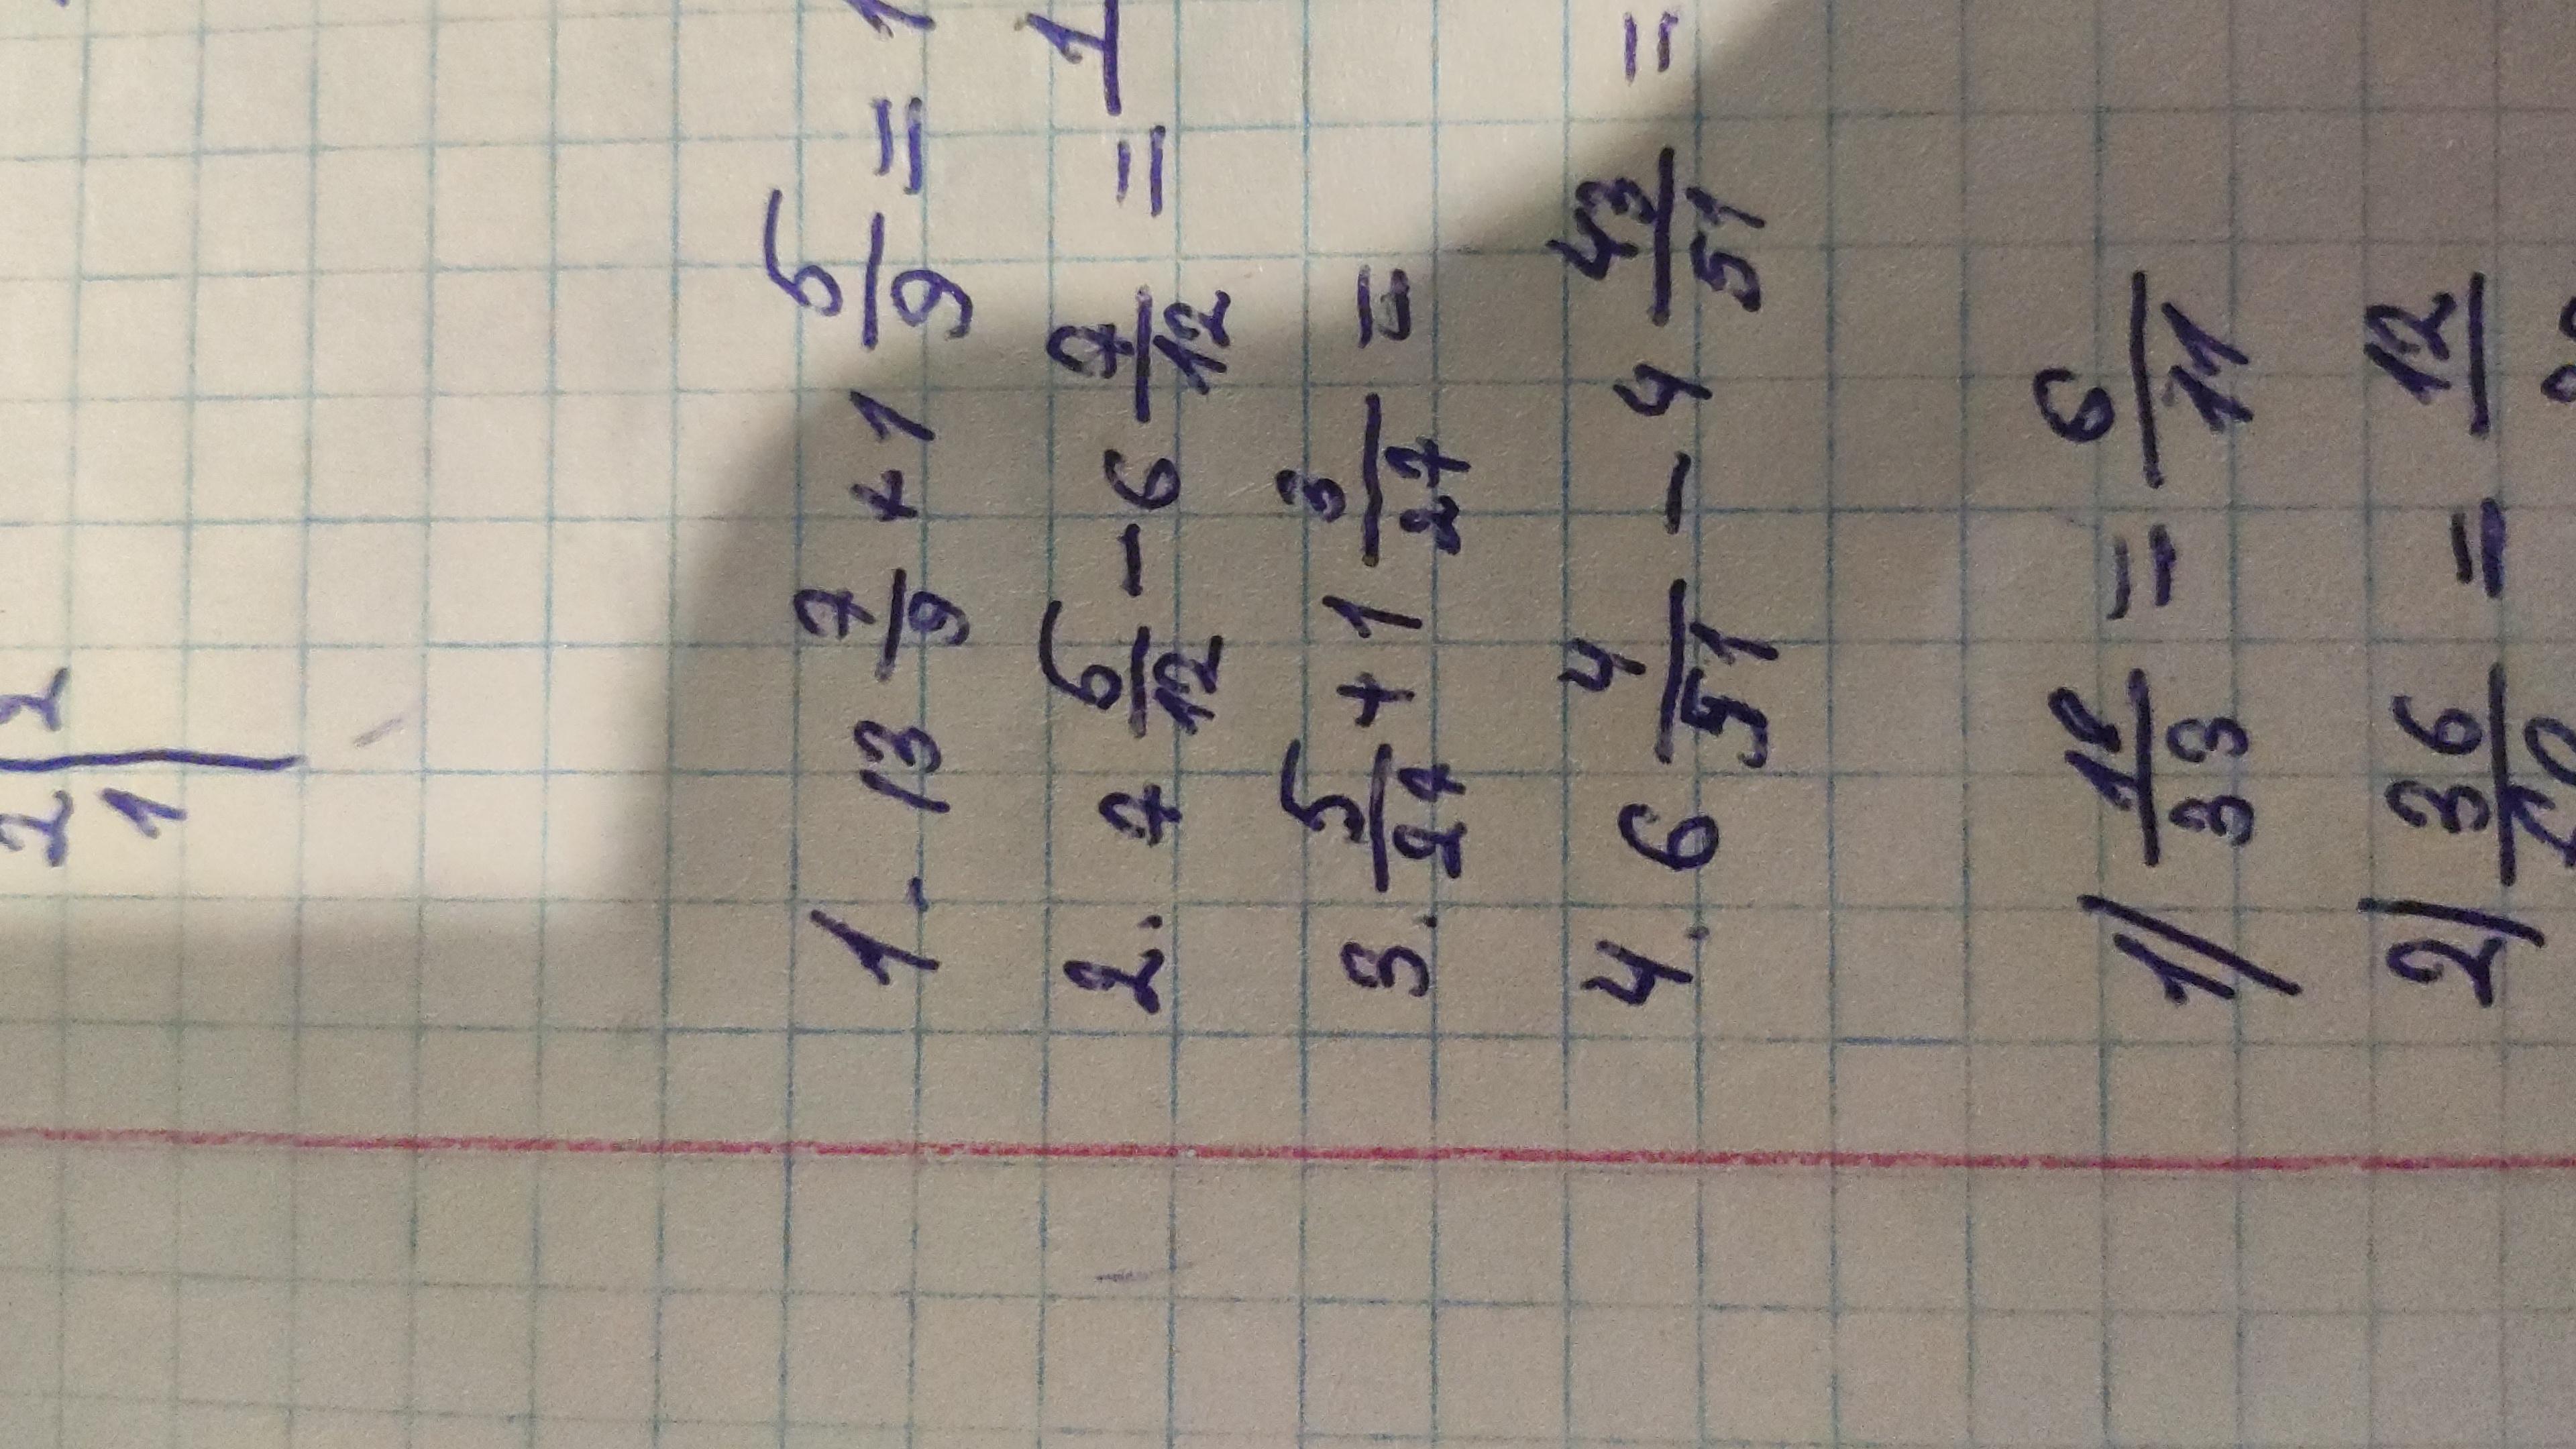 2 2
1
1. 13 7/9 + 1 5/9 = 1
2. 7 5/12 - 6 7/12 = 1
3. 5/27 + 1 3/27 =
4. 6 4/51 - 4 43/51 =
1) 18/33 = 6/11
2) 36/ = 12/